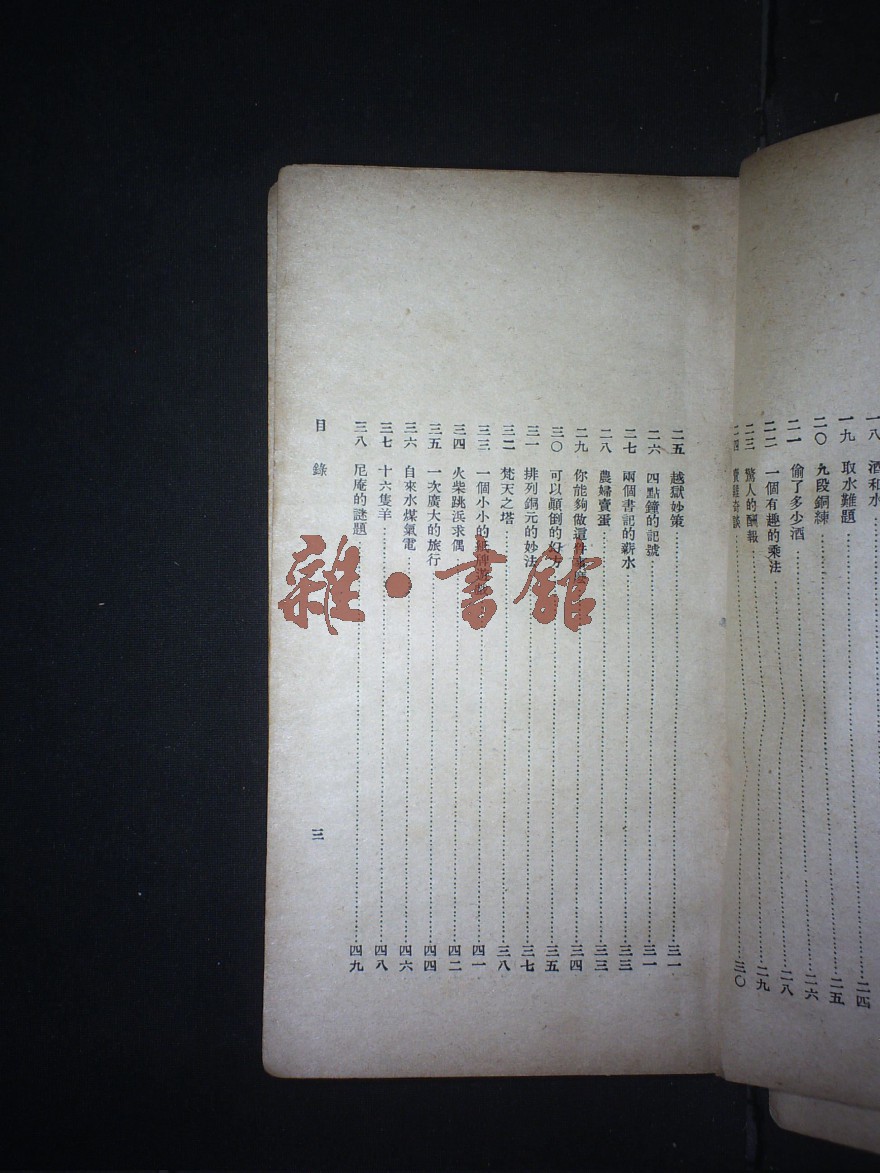 一八 酒和水 二四
一九 取水難題 二五
二〇 九段銅練 二六
二一 偷了多少酒 二八
二二 一個有趣的乘法 二九
二三 驚人的酬報
二四 賣雞奇談 三〇
二五 越獄妙策 三一
二六 四點鐘的記號 三一
二七 兩個書記的薪水 三三
二八 農婦賣蛋 三三
二九 你能夠做這件 三四
三〇 可以顛倒的幻方 三五
三一 排列銅元的妙法 三七
三二 梵天之塔 三八
三三 一個小小的紙牌遊戲 四一
三四 火柴跳浜求偶 四二
三五 一次廣大的旅行 四四
三六 自來水煤氣電 四六
三七 十六隻羊 四八
三八 尼庵的謎題 四九
目錄 三
雜·書館